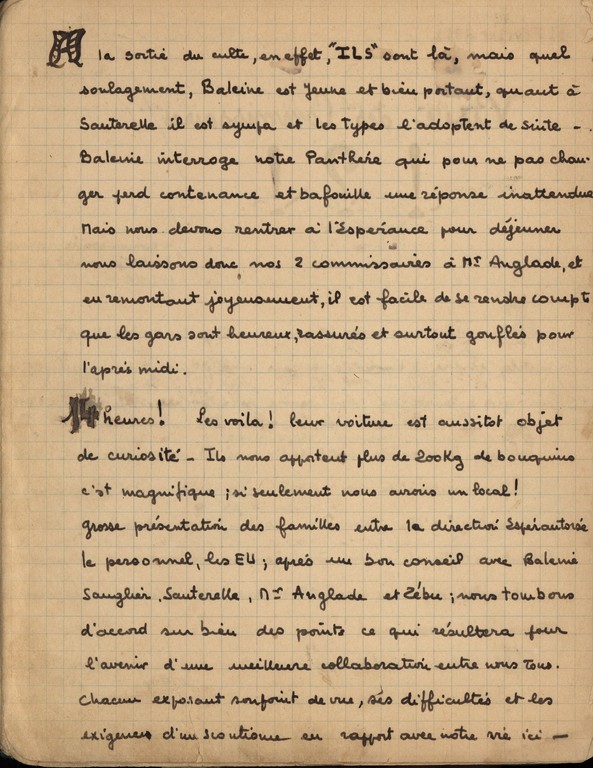 A la sortie du culte, en effet, "ILS" sont là, mais quel
soulagement, Baleine est jeune et bien portant, quant à
Sauterelle il est sympa et les types l'adoptent de suite -.
Baleine interroge notre Panthère qui pour ne pas chan-
ger perd contenance et bafouille une réponse inattendue
Mais nous devons rentrer à l'Espérance pour déjeuner
nous laissons donc nos 2 commissaires à Mr Anglade, et
en remontant joyeusement, il est facile de se rendre compte
que les gars sont heureux, rassurés et surtout gonflés pour
l'après midi.
14 heures! Les voila! leur voiture est aussitot objet
de curiosité - Ils nous apportent plus de 200Kg de bouquins
c'est magnifique ; si seulement nous avions un local!
grosse présentation des familles entre la direction
le personnel, les EU ; après un bon conseil avec Baleine
Sanglier, Sauterelle, Mr Anglade et Zébu ; nous tombons
d'accord sur bien des points ce qui résultera pour
l'avenir d'une meilleure collaboration entre nous tous.
Chacun exposant son point de vue, ses difficultés et les
exigences d'un scoutisme en rapport avec notre vie ici -